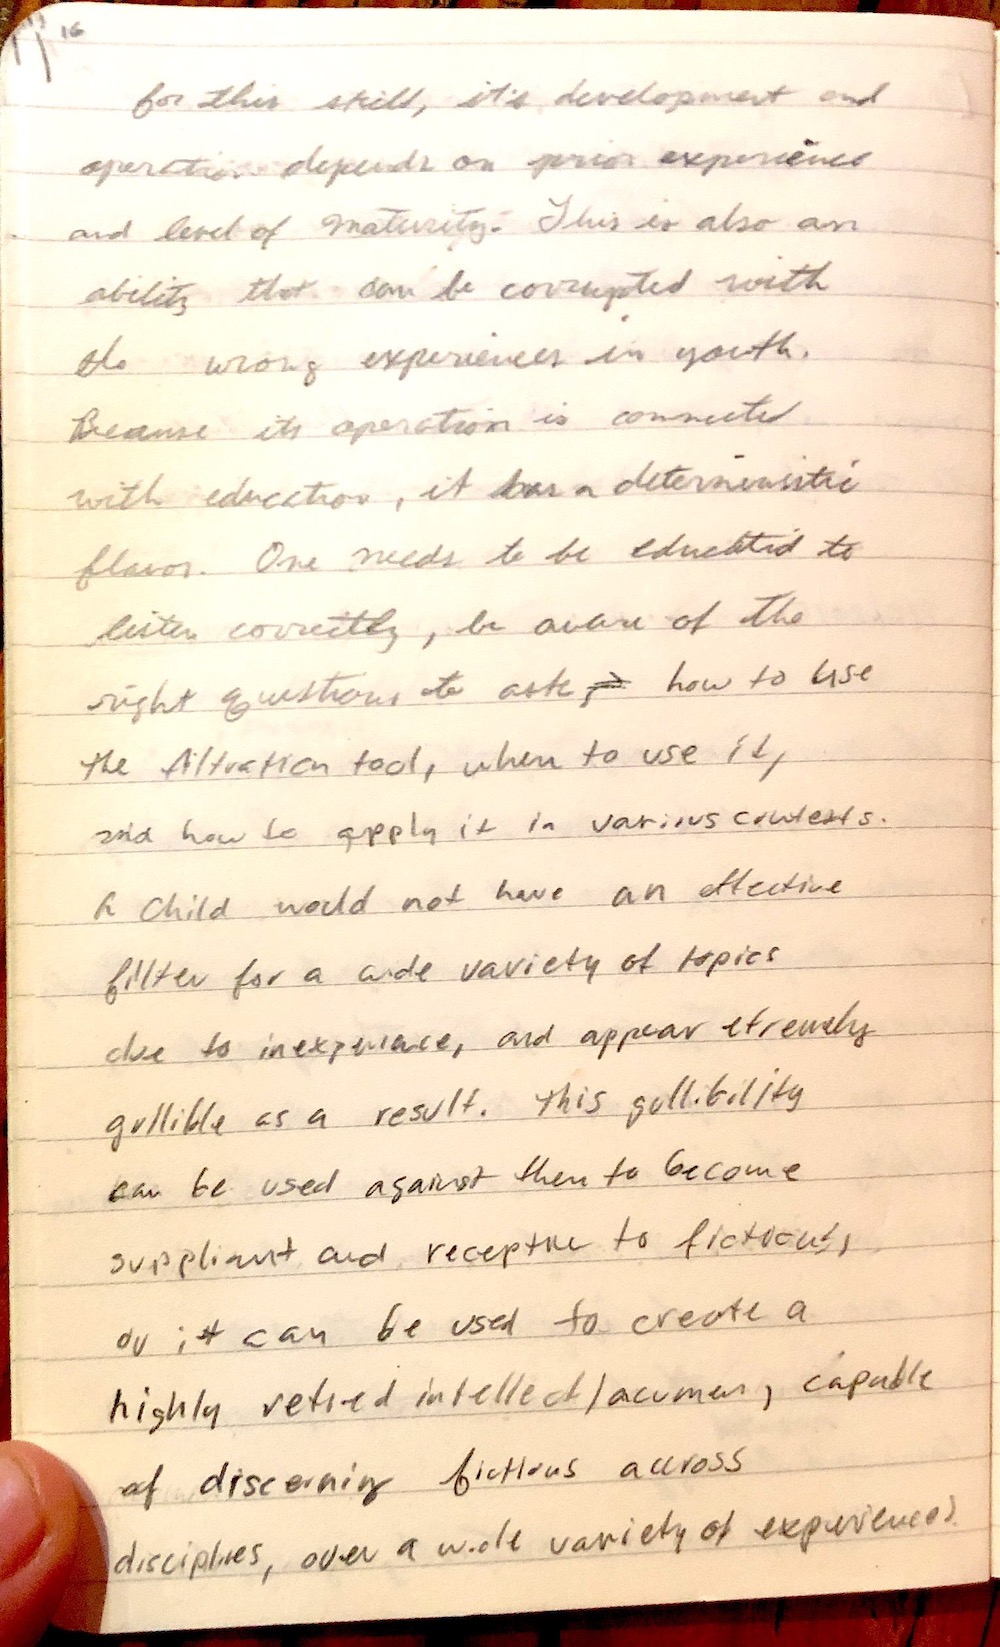 16
for this skill, it's development and
operation depends on prior experience
and level of maturity. This is also an
ability that can be corrupted with
the wrong experiences in youth.
Because its operation is connected
with education, it has a determinsitic
flavor. One needs to be educated to
listen correctly, be aware of the
right questions to ask, how to use
the filtration tool, when to use it,
and how to apply it in various contexts.
A child would not have an effective
filter for a wide variety of topics
due to inexperience, and appear etremely
gullible as a result. This gullibility
can be used against them to become
suppliant and receptive to fictions,
or it can be used to create a
highly refined intellect/acumen, capable
of discerning fictions accross
disciplines, over a wide variety of experiences.